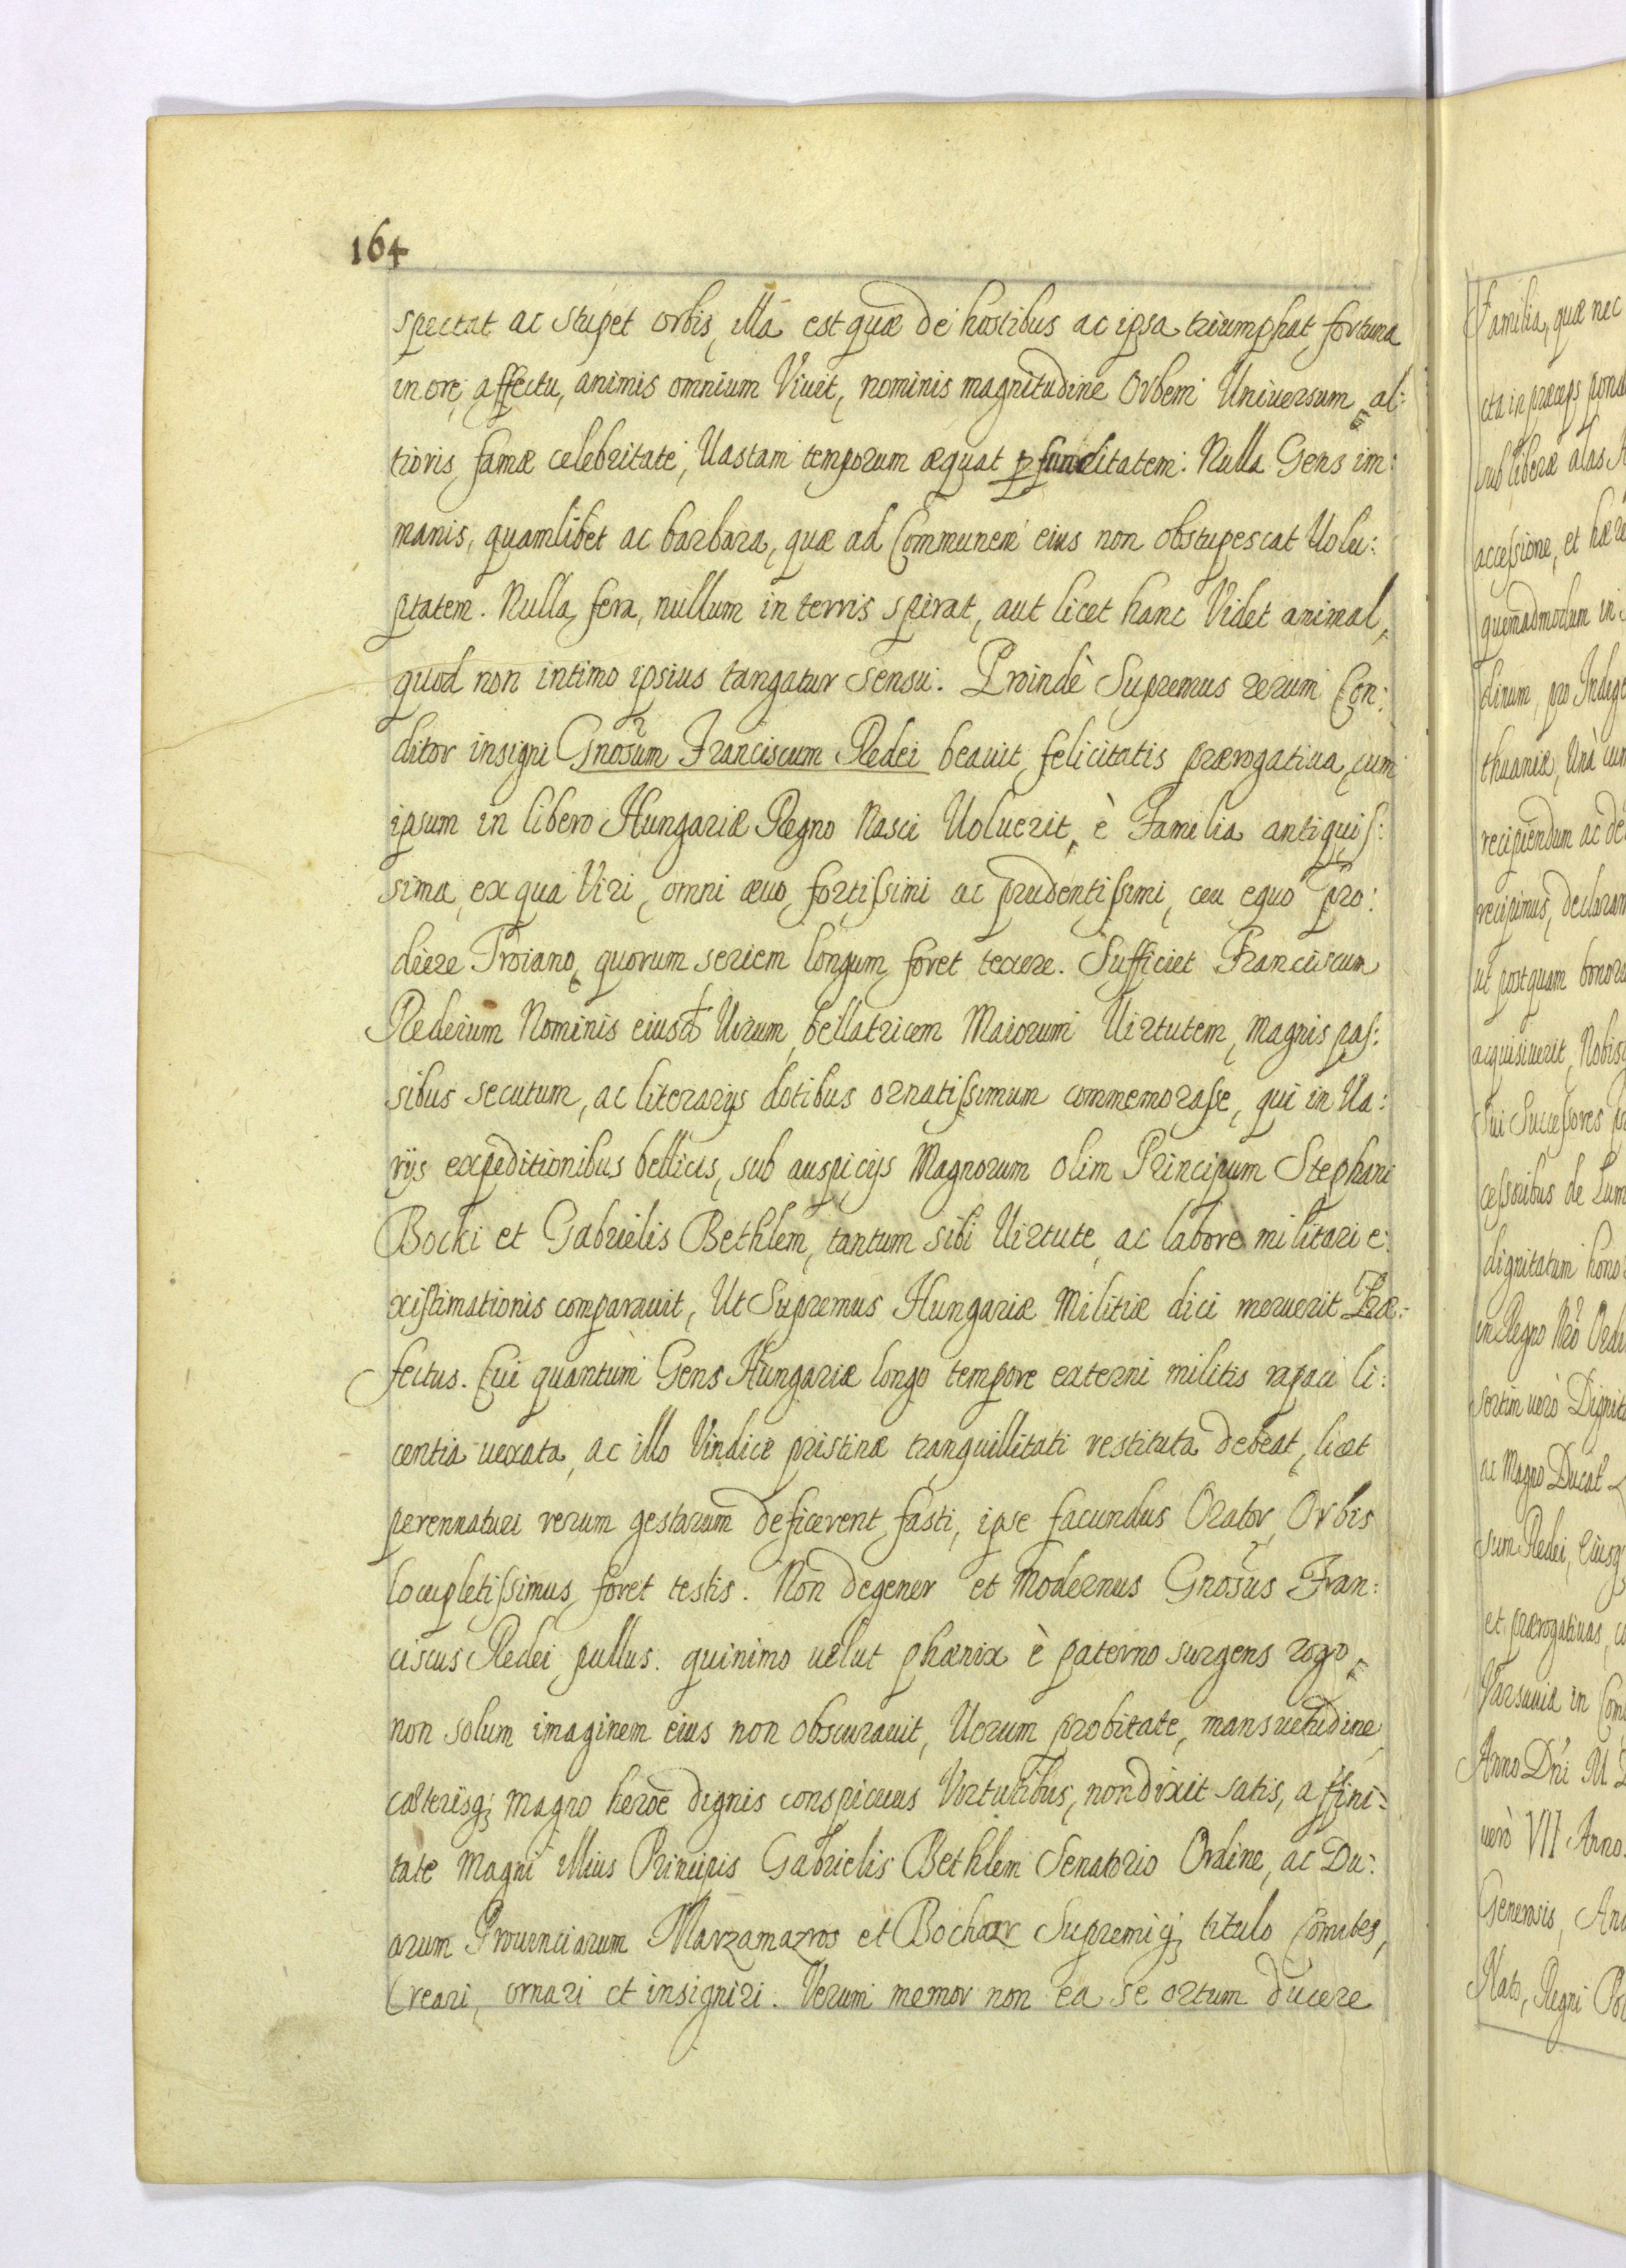 164
spectat ac stupet orbis, illa est quæ de hostibus ac ipsa triumphat fortuna
in ore, affectu, animis omnium Viuit, nominis magnitudine Orbem Uniuersum, al:
tioris famæ celebritate, Uastam temporum æquat pfunditatem. Nulla Gens im:
manis, quamlibet ac barbara, quæ ad Communem eius non obstupescat Uolu:
ptatem. Nulla fera, nullum in terris spirat, aut licet hanc Videt animal,
quod non intimo ipsius tangatur sensu. Proindè Supremus rerum Con:
ditor insigni Gnosum Franciscum Redei beauit felicitatis prærogatiua, cum
ipsum in libero Hungariæ Regno Nasci Uoluerit, è Familia antiquis:
sima, ex qua Viri, omni æuo, fortissimi ac prudentissimi, ceu equo pro:
diere Troiano, quorum seriem longum foret texere. Sufficiet Franciscum
Rederum Nominis eiusd Uirum, bellatricem Maiorum Uirtutem, magnis pas:
sibus secutum, ac literarijs dotibus ornatissimum commemorasse, qui in Ua:
rijs expeditionibus bellicis, sub auspicijs Magnorum olim Principum Stephani
Bocki et Gabrielis Bethlem, tantum sibi Uirtute, ac labore militari e:
xistimationis comparauit, Ut Supremus Hungariæ Militiæ dici meruerit Præ:
fectus. Cui quantum Gens Hungariæ longo tempore externi militis rapaci li:
centia uexata, ac illo Vindice pristinæ tranquillitati restituta debeat, licet
perennaturi rerum gestarum deficerent fasti, ipse facundus Orator, Orbis
locupletissimus foret testis. Non degener et Modernus Gnosus Fran:
ciscus Redei pullus. quinimo uelut phænix è paterno surgens rogo,
non solum imaginem eius non obscurauit, Uerum probitate, mansuetudine,
cæterisq; magno heroe dignis conspicuus Virtutibus, non dixit satis, affini:
tate Magni illius Principis Gabrielis Bethlem Senatorio Ordine, ac Du:
arum Prouinciarum Marzamazros et Bochaxr Supremiq; titulo Comites,
Creari, ornari et insigniri. Verum memor non ea se ortum ducere
Familia, quæ nec
sub liberæ alas
accessione, et
quemadmodum in
recipiendum ac de
ut postquam
acquisiuerit, Nobis
Sui Successores
cessoribus de
dignitatum
in Regno Nro
ac Magno Ducat
sum Redei, eiusq
et prærogatiuas,
Varsauiæ in
Anno Dni M
uero VII Anno
Nato, Regni